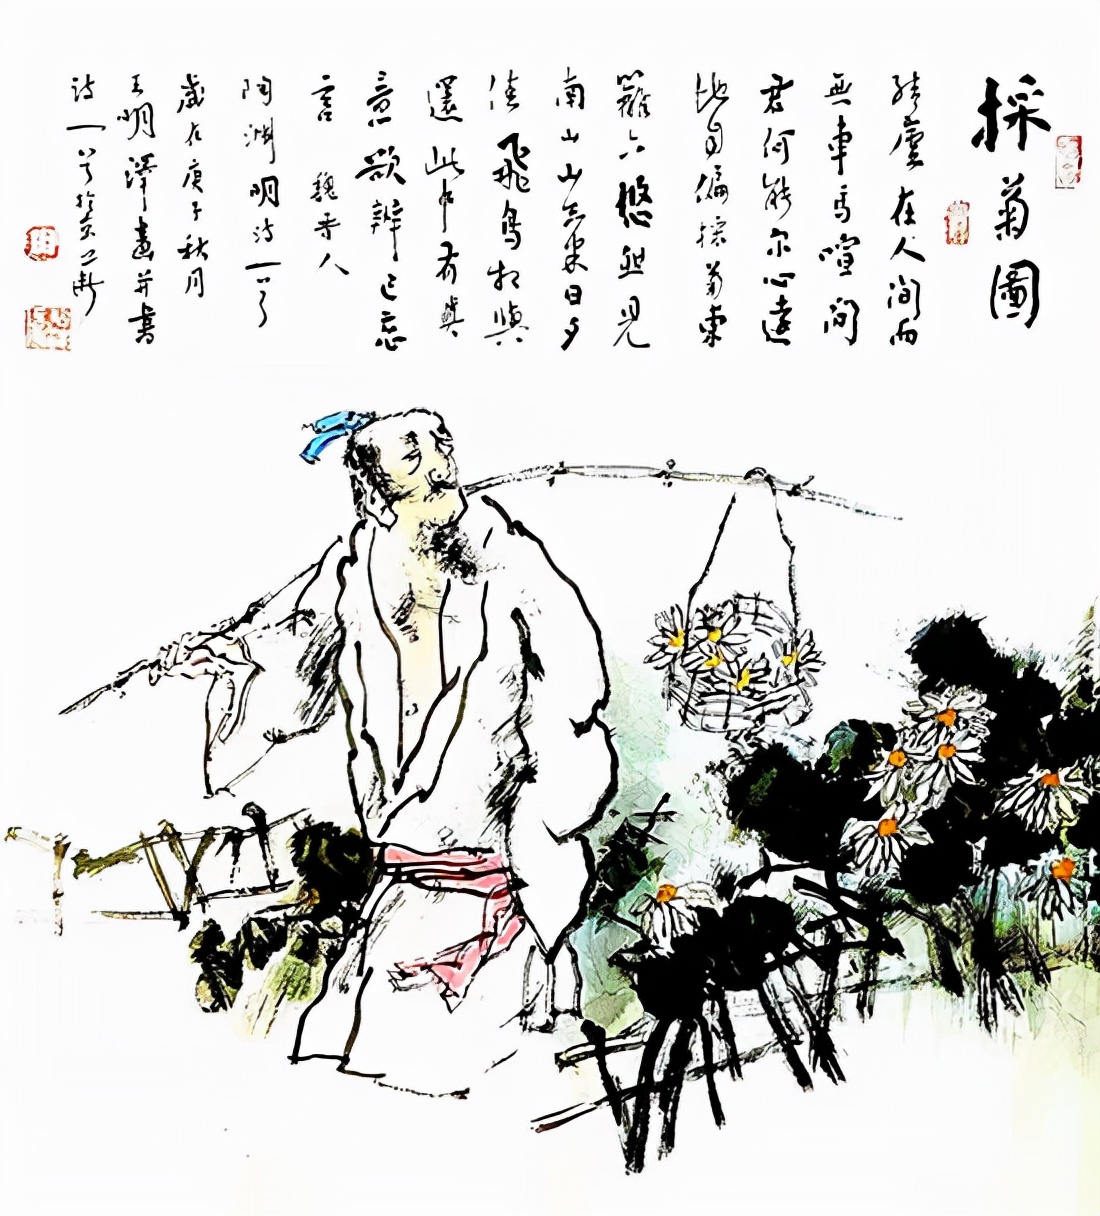 採菊圖
結廬在人间而
無車馬喧问
君何能尔心遠
地自偏採菊東
籬下悠然見
南山山气来日夕
佳飛鳥相與
還此中有真
意欲辨已忘
言 魏晋人
陶渊明诗一首
歲在庚子秋月
王明澤畫并書
诗一首於京